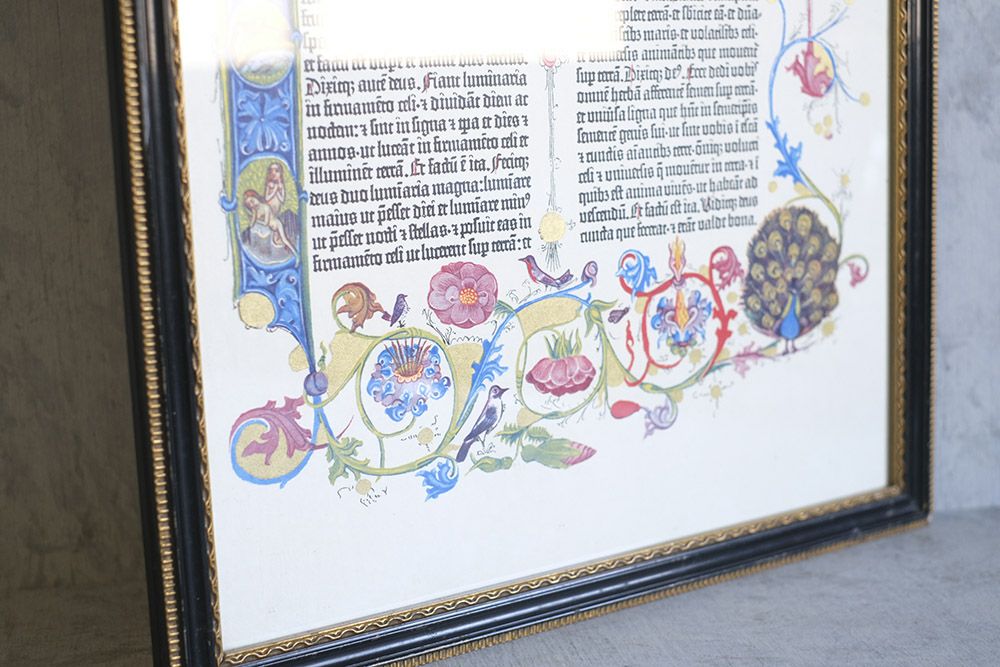 et factū
Dixitqꝫ autē deus. Fiant luminaria
in firmamēto celi · ⁊ dividāt diem ac
noctem: ⁊ sint in signa ⁊ tp̄a et dies ⁊
annos · ut luceāt in firmamēto celi et
illuminēt terrā. Et factū ē ita. Fecitqꝫ
deus duo luminaria magna: lumīare
maius ut p̄esset diei et lumīare minꝰ
ut p̄esset nocti ⁊ stellas · ⁊ posuit eas in
firmamēto celi ut lucerent sup terrā: et
replete terrā · et sbicite eā · et dn̄a
piscibꝫ maris · et volatilibꝫ celi ·
et universis animātibꝫ que movent̄
sup terrā. Dixitqꝫ deꝰ. Ecce dedi vobis
omnē herbā afferentē semen sup terrā ·
et univsa ligna que hn̄t in semetip̄is
sementē genis sui · ut sint vobis ī escā
⁊ cunctis aīantibꝫ terre · oīqꝫ volucri
celi ⁊ universis q̄ movent̄ in terra · ⁊ ī
quibꝫ est anima vivēs · ut habeāt ad
vescendū. Et factū est ita. Viditqꝫ deus
cuncta que fecerat · ⁊ erāt valde bona.